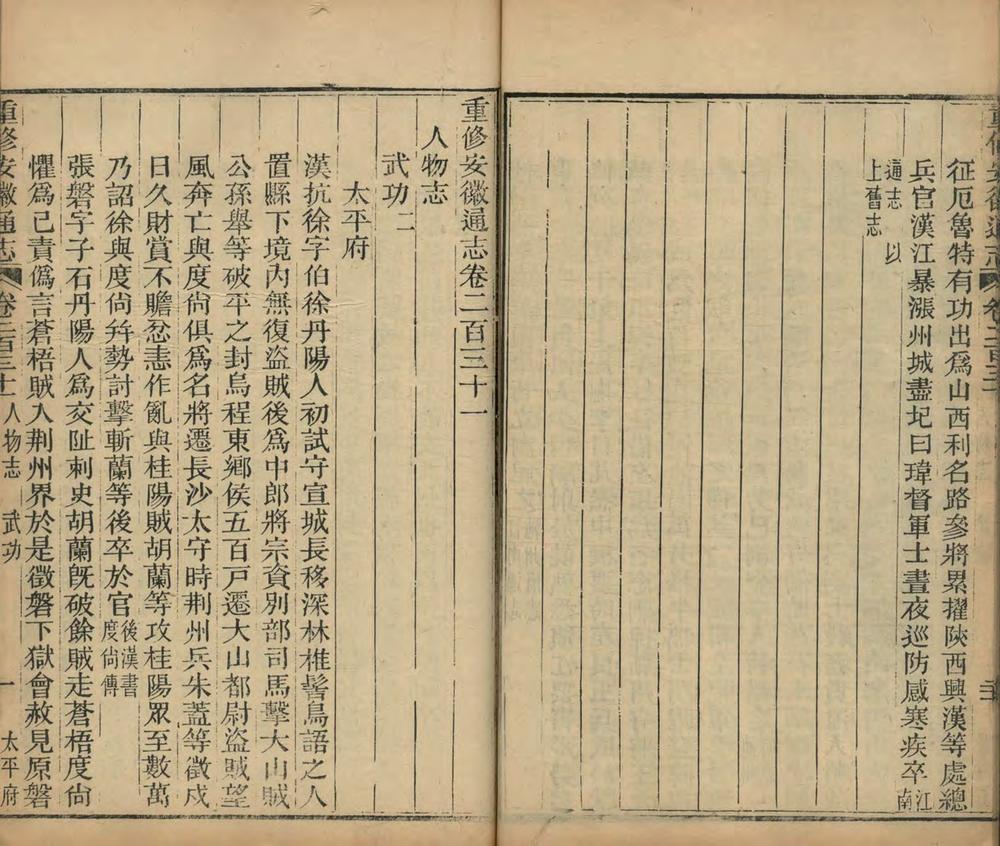 征厄魯特有功出爲山西利名路參將累擢陝西興漢等處總
兵官漢江暴漲州城盡圮曰瑋督軍士晝夜巡防感寒疾卒江南
通志 以
上舊志
重修安徽通志卷二百三十一
人物志
武功二
太平府
漢抗徐字伯徐丹陽人初試守宣城長移深林椎髻鳥語之人
置縣下境內無復盜賊後爲中郎將宗資別部司馬擊大山賊
公孫舉等破平之封烏程東鄉侯五百戸遷大山都尉盜賊望
風奔亡與度尚俱爲名將遷長沙太守時荆州兵朱蓋等徵戍
日久財賞不贍忿恚作亂與桂陽賊胡蘭等攻桂陽眾至數萬
乃詔徐與度尚幷勢討擊斬蘭等後卒於官後漢書度尚傳
張磐字子石丹陽人爲交阯刺史胡蘭旣破餘賊走蒼梧度尚
懼爲己責僞言蒼梧賊入荆州界於是徵磐下獄會赦見原磐
重修安徽通志 卷二百三十一 人物志 武功 一 太平府